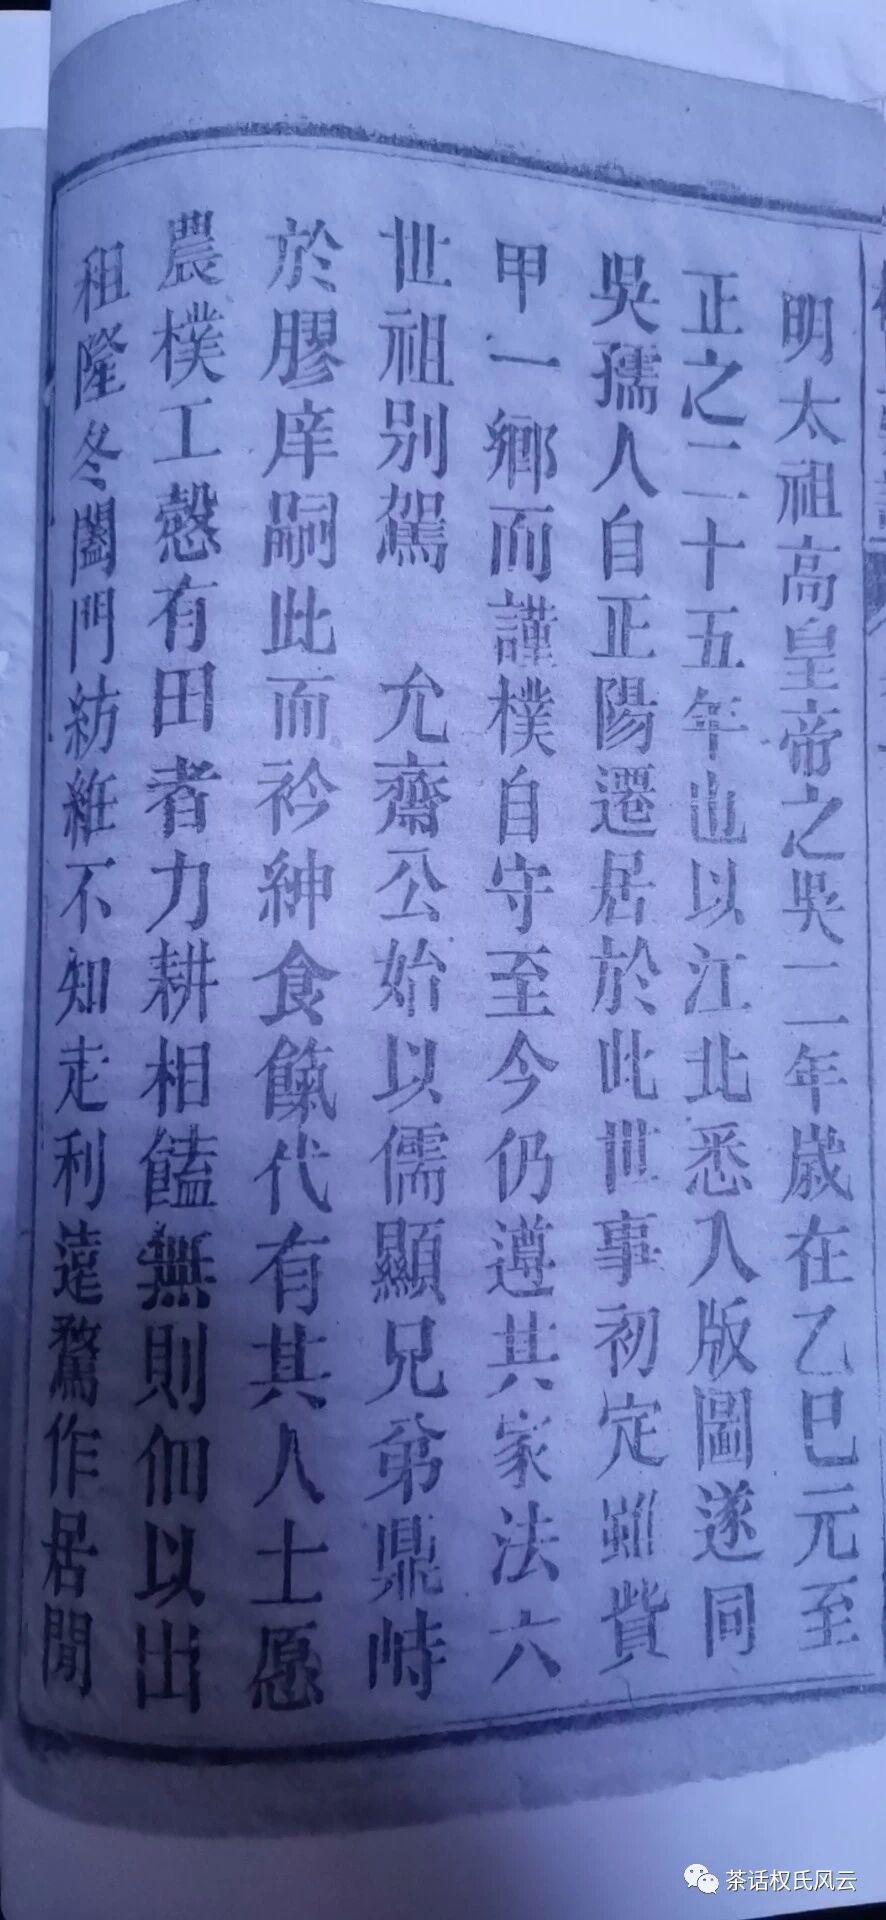 明太祖高皇帝之吳二年歲在乙巳元至
正之二十五年也以江北悉入版圖遂同
吳孺人自正陽遷居於此世事初定雖貲
甲一鄉而謹樸自守至今仍遵其家法六
世祖別駕　允齋公始以儒顯兄弟鼎峙
於膠庠嗣此而衿紳食餼代有其人士愿
農樸工慤有田者力耕相饁無則佃以出
租隆冬闔門紡絍不知走利遠騖作居閒
茶话权氏风云